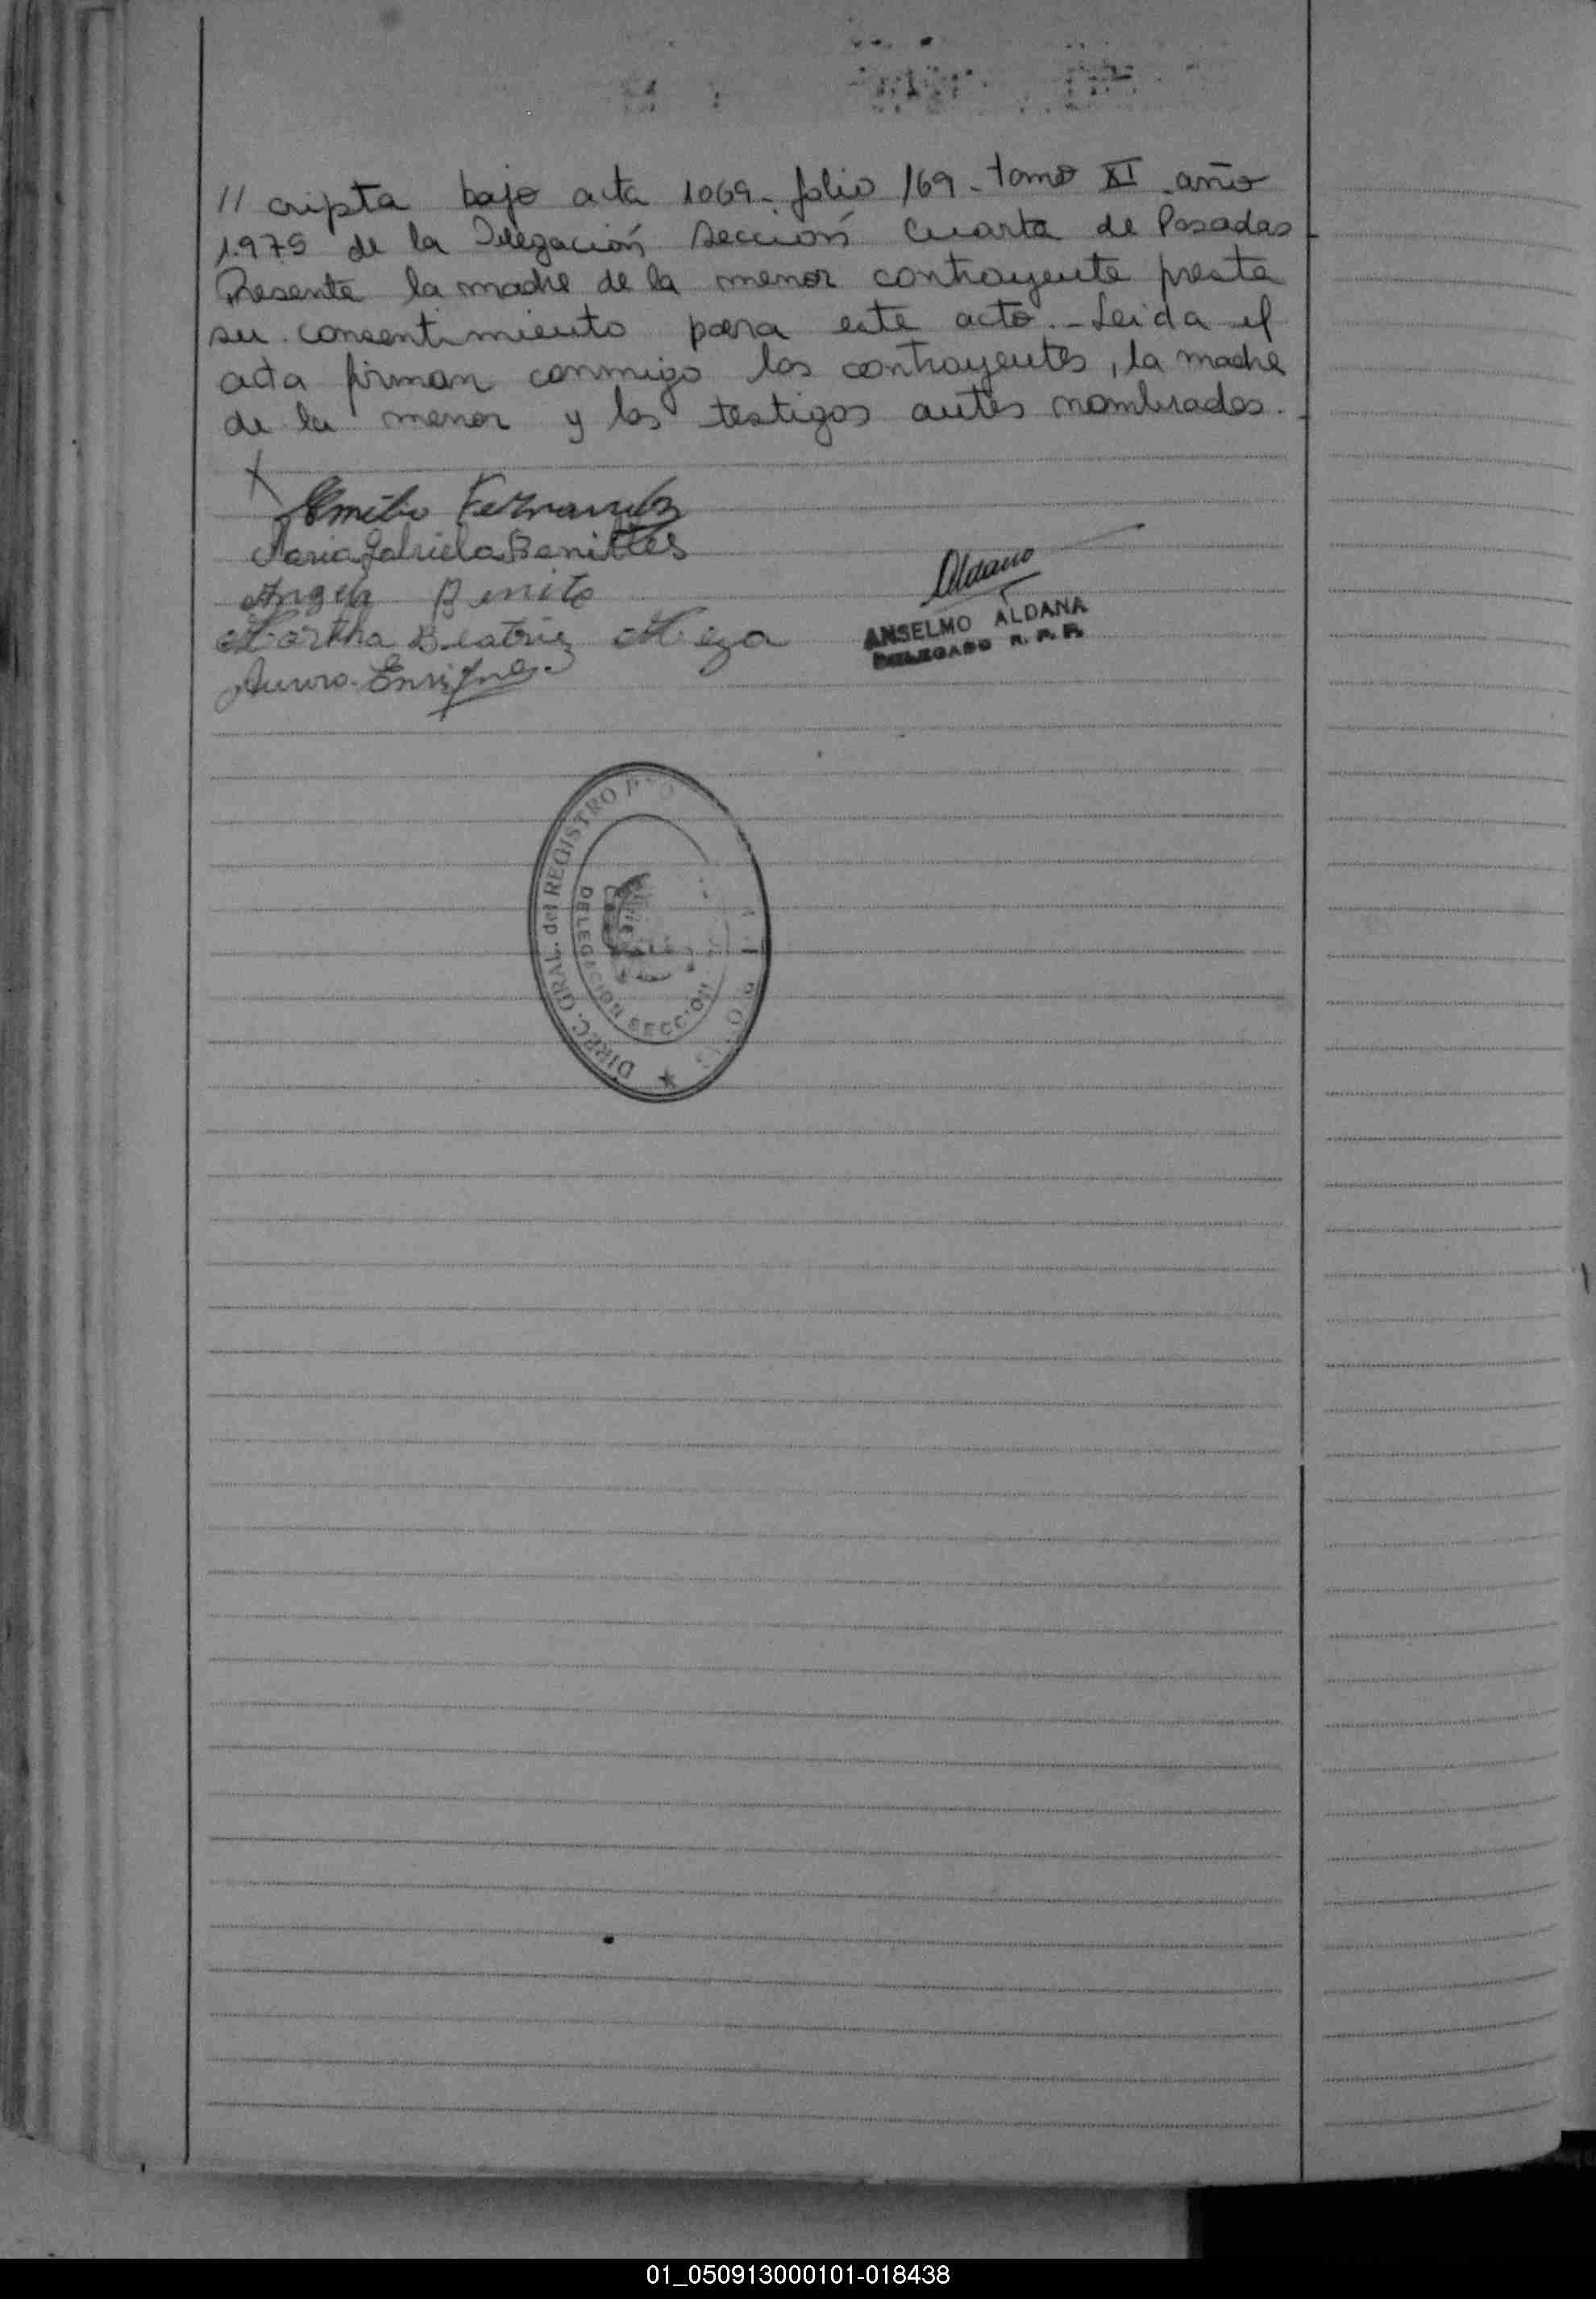 // cripta bajo acta 1069 - folio 169 - tomo XI - año
1.975 de la Delegación Sección Cuarta de Posadas
Presente la madre de la menor contrayente presta
su consentimiento para este acto. - Leida el
acta firman conmigo los contrayentes, la madre
de la menor y los testigos antes nombrados. -
X
Emilio Fernandez
Maria Gabriela Benittes
Angela Benite
Martha Beatriz Meza
Aurora Enrique
Aldana
ANSELMO ALDANA
DELEGADO R. P. P.
DIREC. GRAL. del REGISTRO
DELEGACION SECCION
01_050913000101-018438